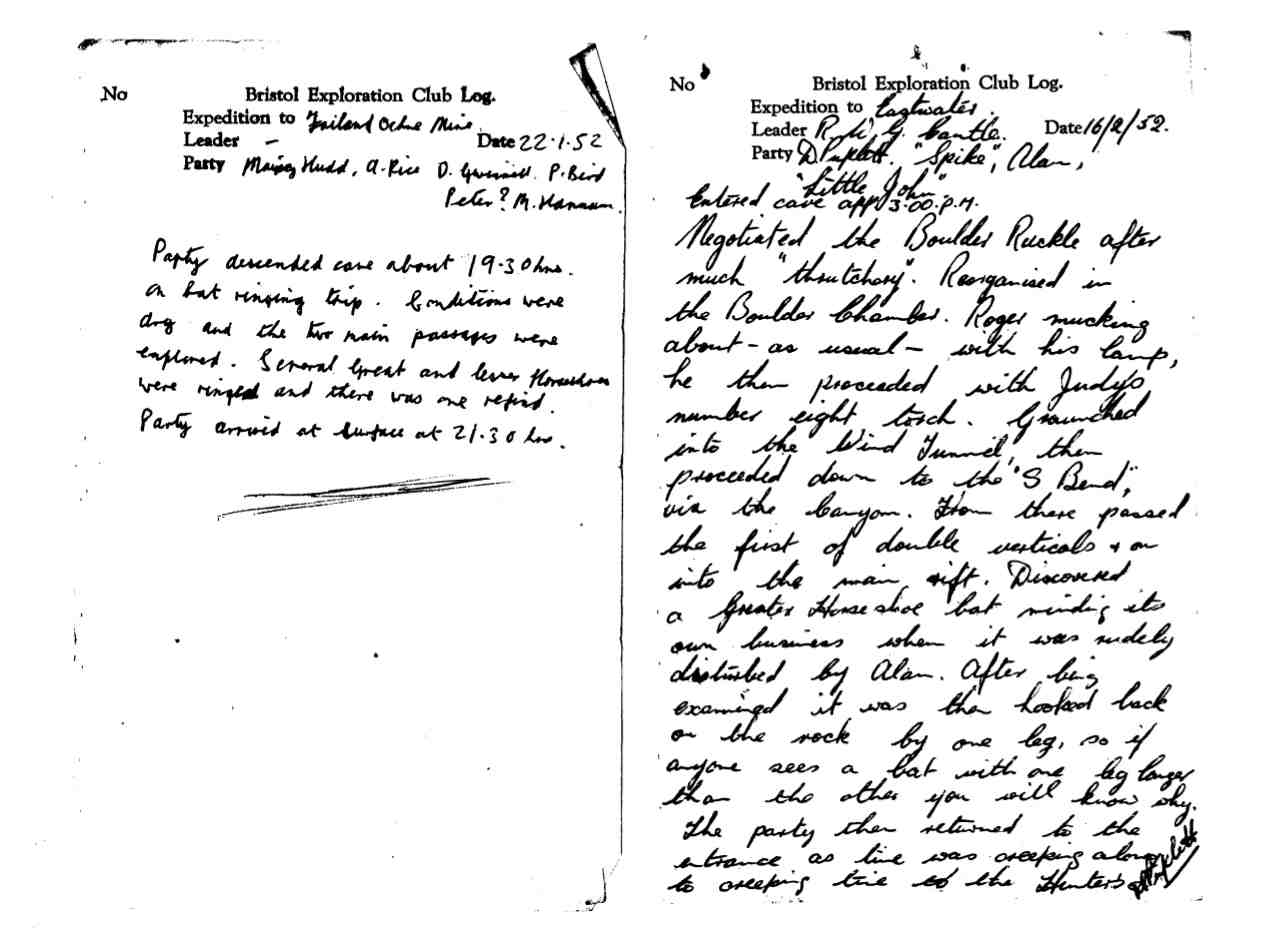 No
Bristol Exploration Club Log.
Expedition to Failand Ochre Mine.
Leader – Date 22·1·52
Party Hudd, A. Rice D. P. Bird
Peter? M. Hannam.
Party descended cave about 19·30 hrs.
on bat ringing trip. Conditions were
dry and the two main passages were
explored. Several Great and lesser Horseshoes
were ringed and there was one refind.
Party arrived at surface at 21·30 hrs.
No
Bristol Exploration Club Log.
Expedition to Eastwater.
Leader G. Cantle. Date 16/2/52.
Party "Spike", Alan,
"Little John"
Entered cave app 3·00.P.M.
Negotiated the Boulder Ruckle after
much "thrutchery". Reorganised in
the Boulder Chamber. Roger mucking
about – as usual – with his lamp,
he then proceeded with Judy's
number eight torch. Graunched
into the Wind Tunnel, then
proceeded down to the "S Bend",
via the Canyon. From there passed
the first of double verticals + on
into the main rift. Discovered
a Greater Horse shoe bat minding its
own business when it was rudely
disturbed by Alan. After being
examined it was then hooked back
on the rock by one leg, so if
anyone sees a bat with one leg longer
than the other you will know why.
The party then returned to the
entrance as time was creeping along
to creeping time to the Hunters